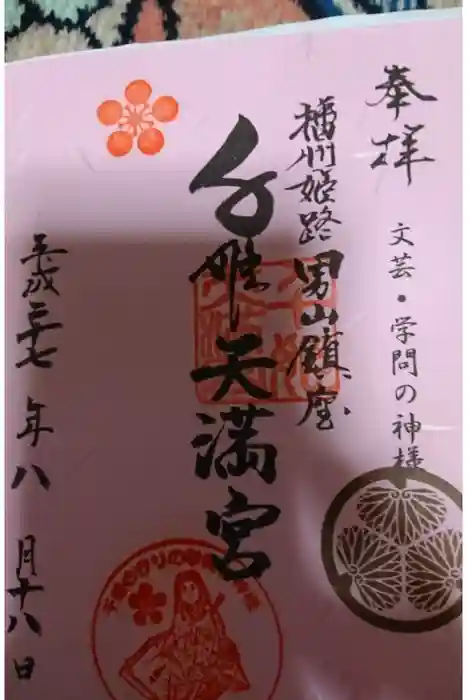 奉拝
文芸・学問の神様
播州姫路男山鎮座
千姫天満宮
平成二十七年八月十八日